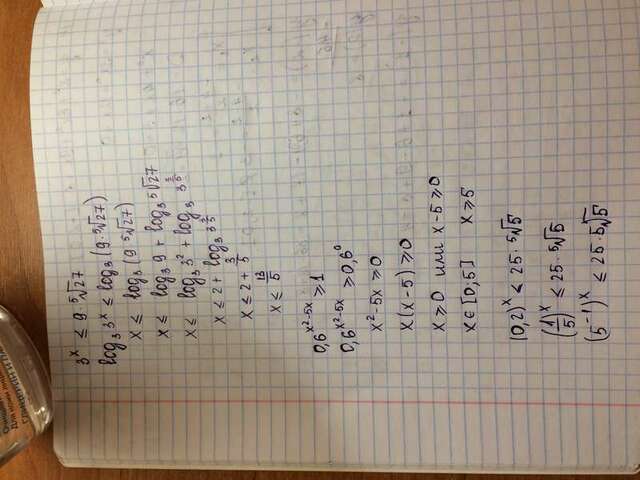 Очищает
Для кожи лица
ГЛИЦЕРИН И ПА
3^x ≤ 9·⁵√27
log₃ 3^x ≤ log₃(9·⁵√27)
x ≤ log₃(9·⁵√27)
x ≤ log₃ 9 + log₃ ⁵√27
x ≤ log₃ 3² + log₃ 3^(3/5)
x ≤ 2 + log₃ 3^(3/5)
x ≤ 2 + 3/5
x ≤ 13/5
0,6^(x²-5x) ≥ 1
0,6^(x²-5x) ≥ 0,6⁰
x² - 5x ≥ 0
x(x-5) ≥ 0
x ≥ 0 или x-5 ≥ 0
x ∈ [0;5] x ≥ 5
(0,2)^x ≤ 25·⁵√5
(1/5)^x ≤ 25·⁵√5
(5^(-1))^x ≤ 25·5√5